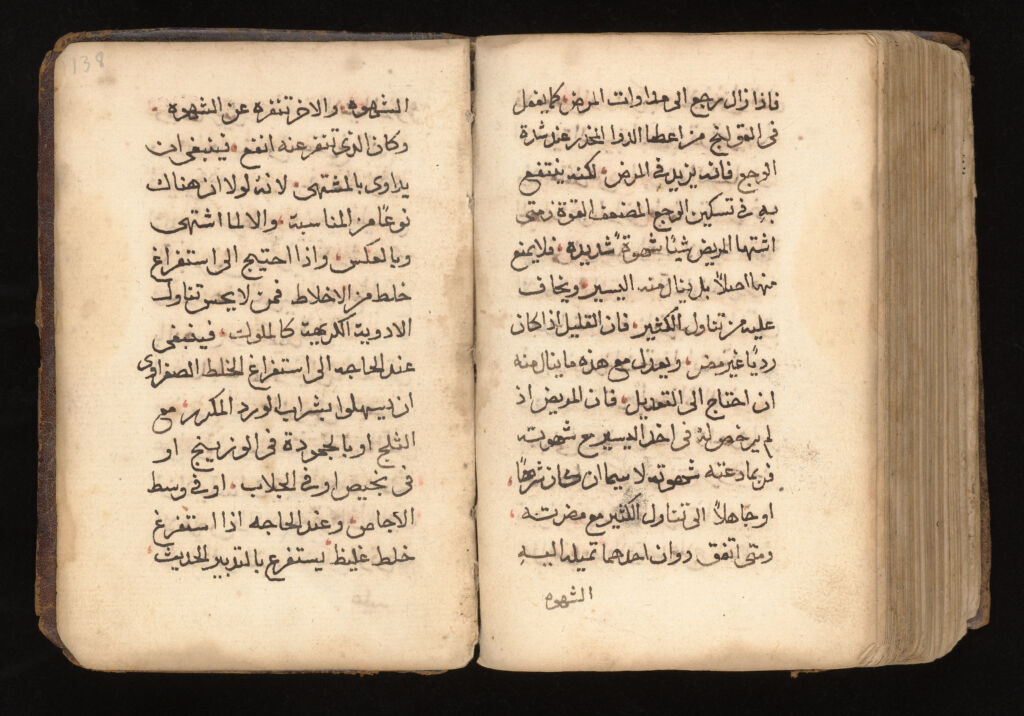 فاذا زال رجع الى مداوات المرض كما يفعل
فى القولنج من اعطا الدوا المخدر عند شدة
الوجع فانه يزيد فى المرض لكنه ينتفع
به فى تسكين الوجع المضعف القوة ومتى
اشتها المريض شيئا شهوة شديده فلا يمنع
منها اصلا بل ينال منه اليسير ويخاف
عليه من تناول الكثير فان القليل اذا كان
رديا غير مضر ويعدل مع هذه ما ينال منه
ان احتاج الى التعديل فان المريض اذ
لم يرخص له فى اخذ اليسير مع شهوته
فربما دعته شهوته لاسيما ان كان شرها
او جاهلا الى تناول الكثير مع مضرته
ومتى اتفق دوان احدهما تميله اليه
الشهوه
138
الشهوه والاخر تنفره عن الشهوه
وكان الذى تنفر عنه انفع فينبغى ان
يداوى بالمشتهى لانه لولا ان هناك
نوعا من المناسبة والا لما اشتهى
وبالعكس واذا احتيج الى استفراغ
خلط من الاخلاط فمن لا يحسن تناول
الادوية الكريهة كالملوك فينبغى
عند الحاجه الى استفراغ الخلط الصفراوى
ان يسهلوا بشراب الورد المكرر مع
الثلج او بالمحمودة فى اللوزينج او
فى او فى الجلاب او فى وسط
الاجاص وعند الحاجه اذا استفرغ
خلط غليظ يستفرغ بالتدبير الحديث